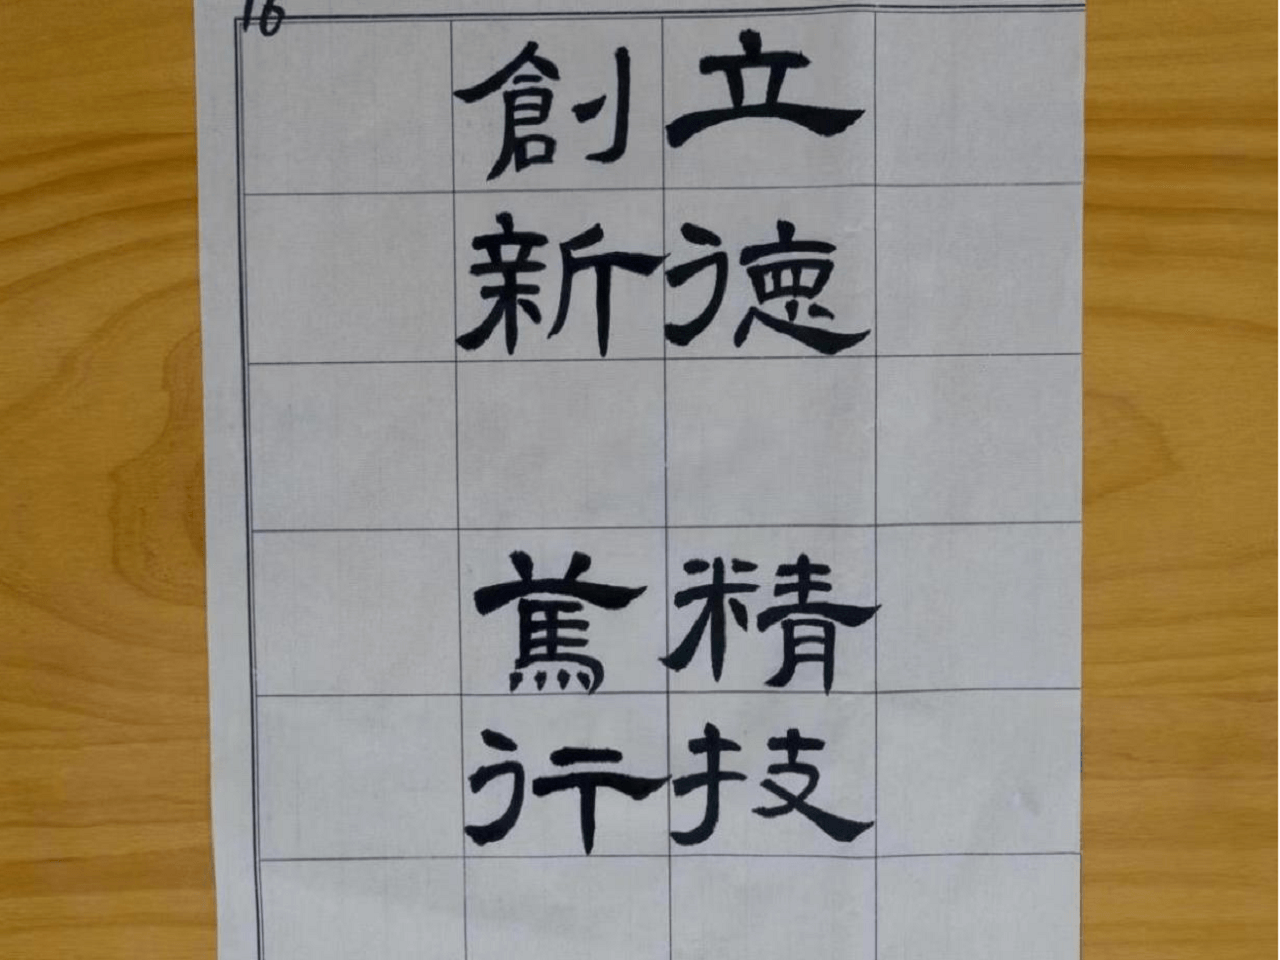 16
立德
創新
精技
篤行